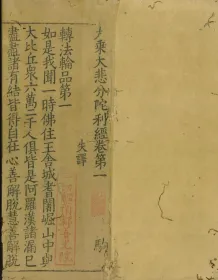 大乘大悲分陀利經卷第一
駒
失譯
轉法輪品第一
如是我聞一時佛住王舍城耆闍崛山中與
大比丘衆六萬二千人俱皆是阿羅漢諸漏已
盡無諸有結皆得自在心善解脫慧善解脫